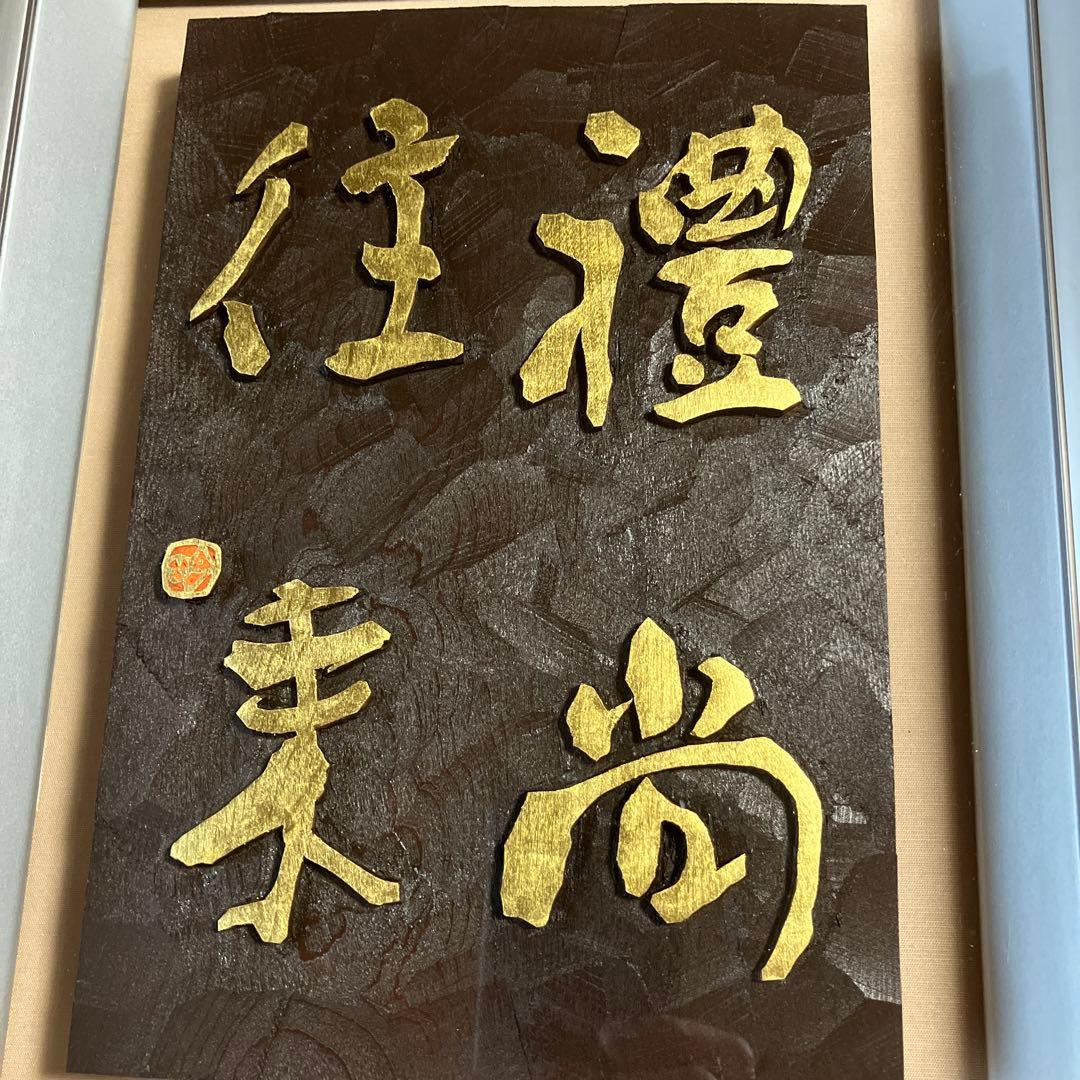 禮尚
往来